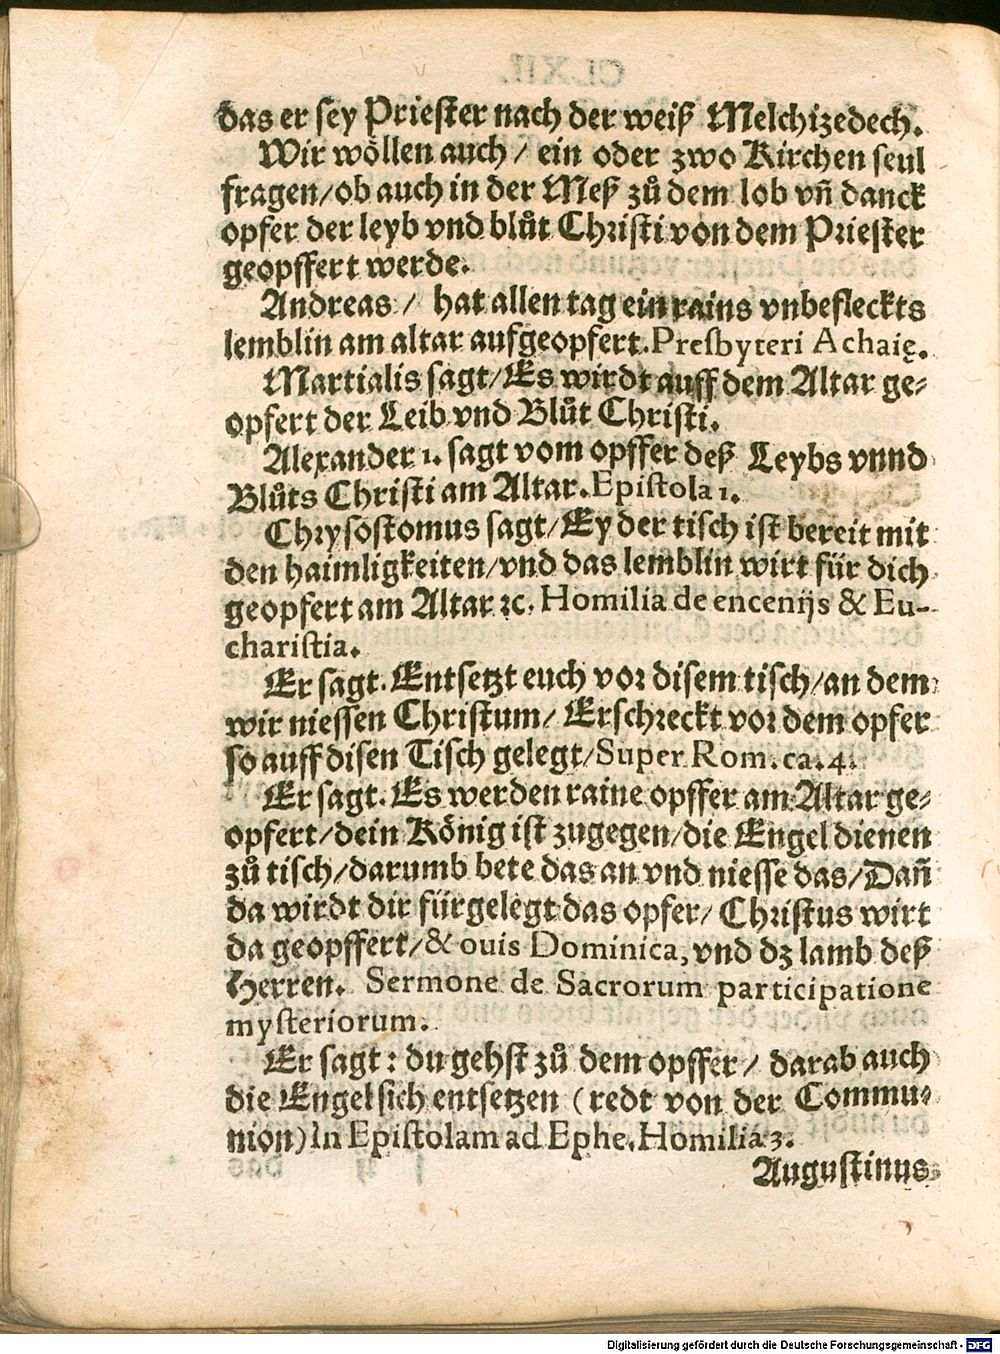 das er sey Priester nach der weiß Melchizedech.
Wir wöllen auch / ein oder zwo Kirchen seul
fragen/ob auch in der Meß zů dem lob vñ danck
opfer der leyb vnd blůt Christi von dem Priester
geopffert werde.
Andreas / hat allen tag ein rains vnbefleckts
lemblin am altar aufgeopfert. Presbyteri Achaię.
Martialis sagt/Es wirdt auff dem Altar ge-
opfert der Leib vnd Blůt Christi.
Alexander 1. sagt vom opffer deß Leybs vnnd
Blůts Christi am Altar. Epistola 1.
Chrysostomus sagt/Ey der tisch ist bereit mit
den haimligkeiten/vnd das lemblin wirt für dich
geopfert am Altar ꝛc. Homilia de encenijs & Eu-
charistia.
Er sagt. Entsetzt euch vor disem tisch/an dem
wir niessen Christum/ Erschreckt vor dem opfer
so auff disen Tisch gelegt/Super Rom. ca. 4.
Er sagt. Es werden raine opffer am Altar ge-
opfert/dein König ist zugegen/die Engel dienen
zů tisch/darumb bete das an vnd niesse das/Dañ
da wirdt dir fürgelegt das opfer/ Christus wirt
da geopffert/& ouis Dominica, vnd dz lamb deß
Herren. Sermone de Sacrorum participatione
mysteriorum.
Er sagt: du gehst zů dem opffer / darab auch
die Engel sich entsetzen (redt von der Commu-
nion) In Epistolam ad Ephe. Homilia 3.
Augustinus
Digitalisierung gefördert durch die Deutsche Forschungsgemeinschaft - DFG